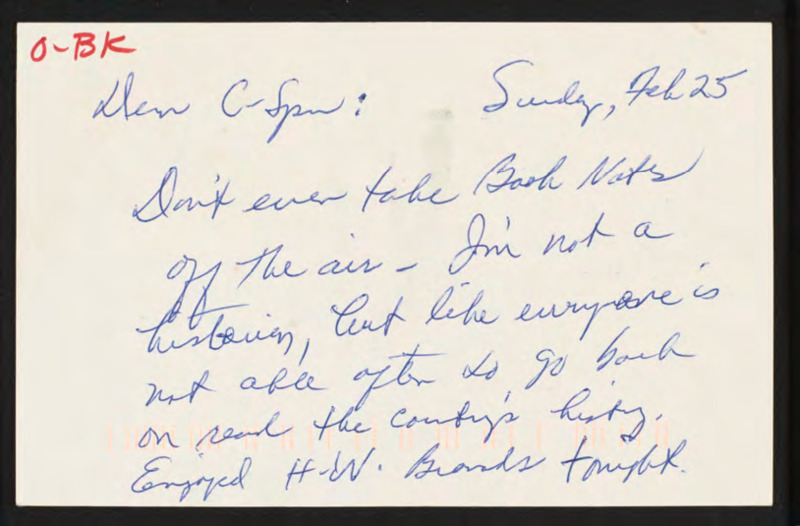 O-BK
Dear C-Span: Sunday, Feb 25
Don't ever take Book Notes
off the air - I'm not a
historian, but like everyone is
not able often to go back
on read the country's history.
Enjoyed H-W. Brands tonight.